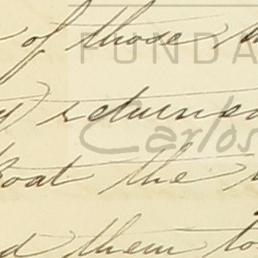 of those
FUNDA
returned
Carlos
boat the
them to